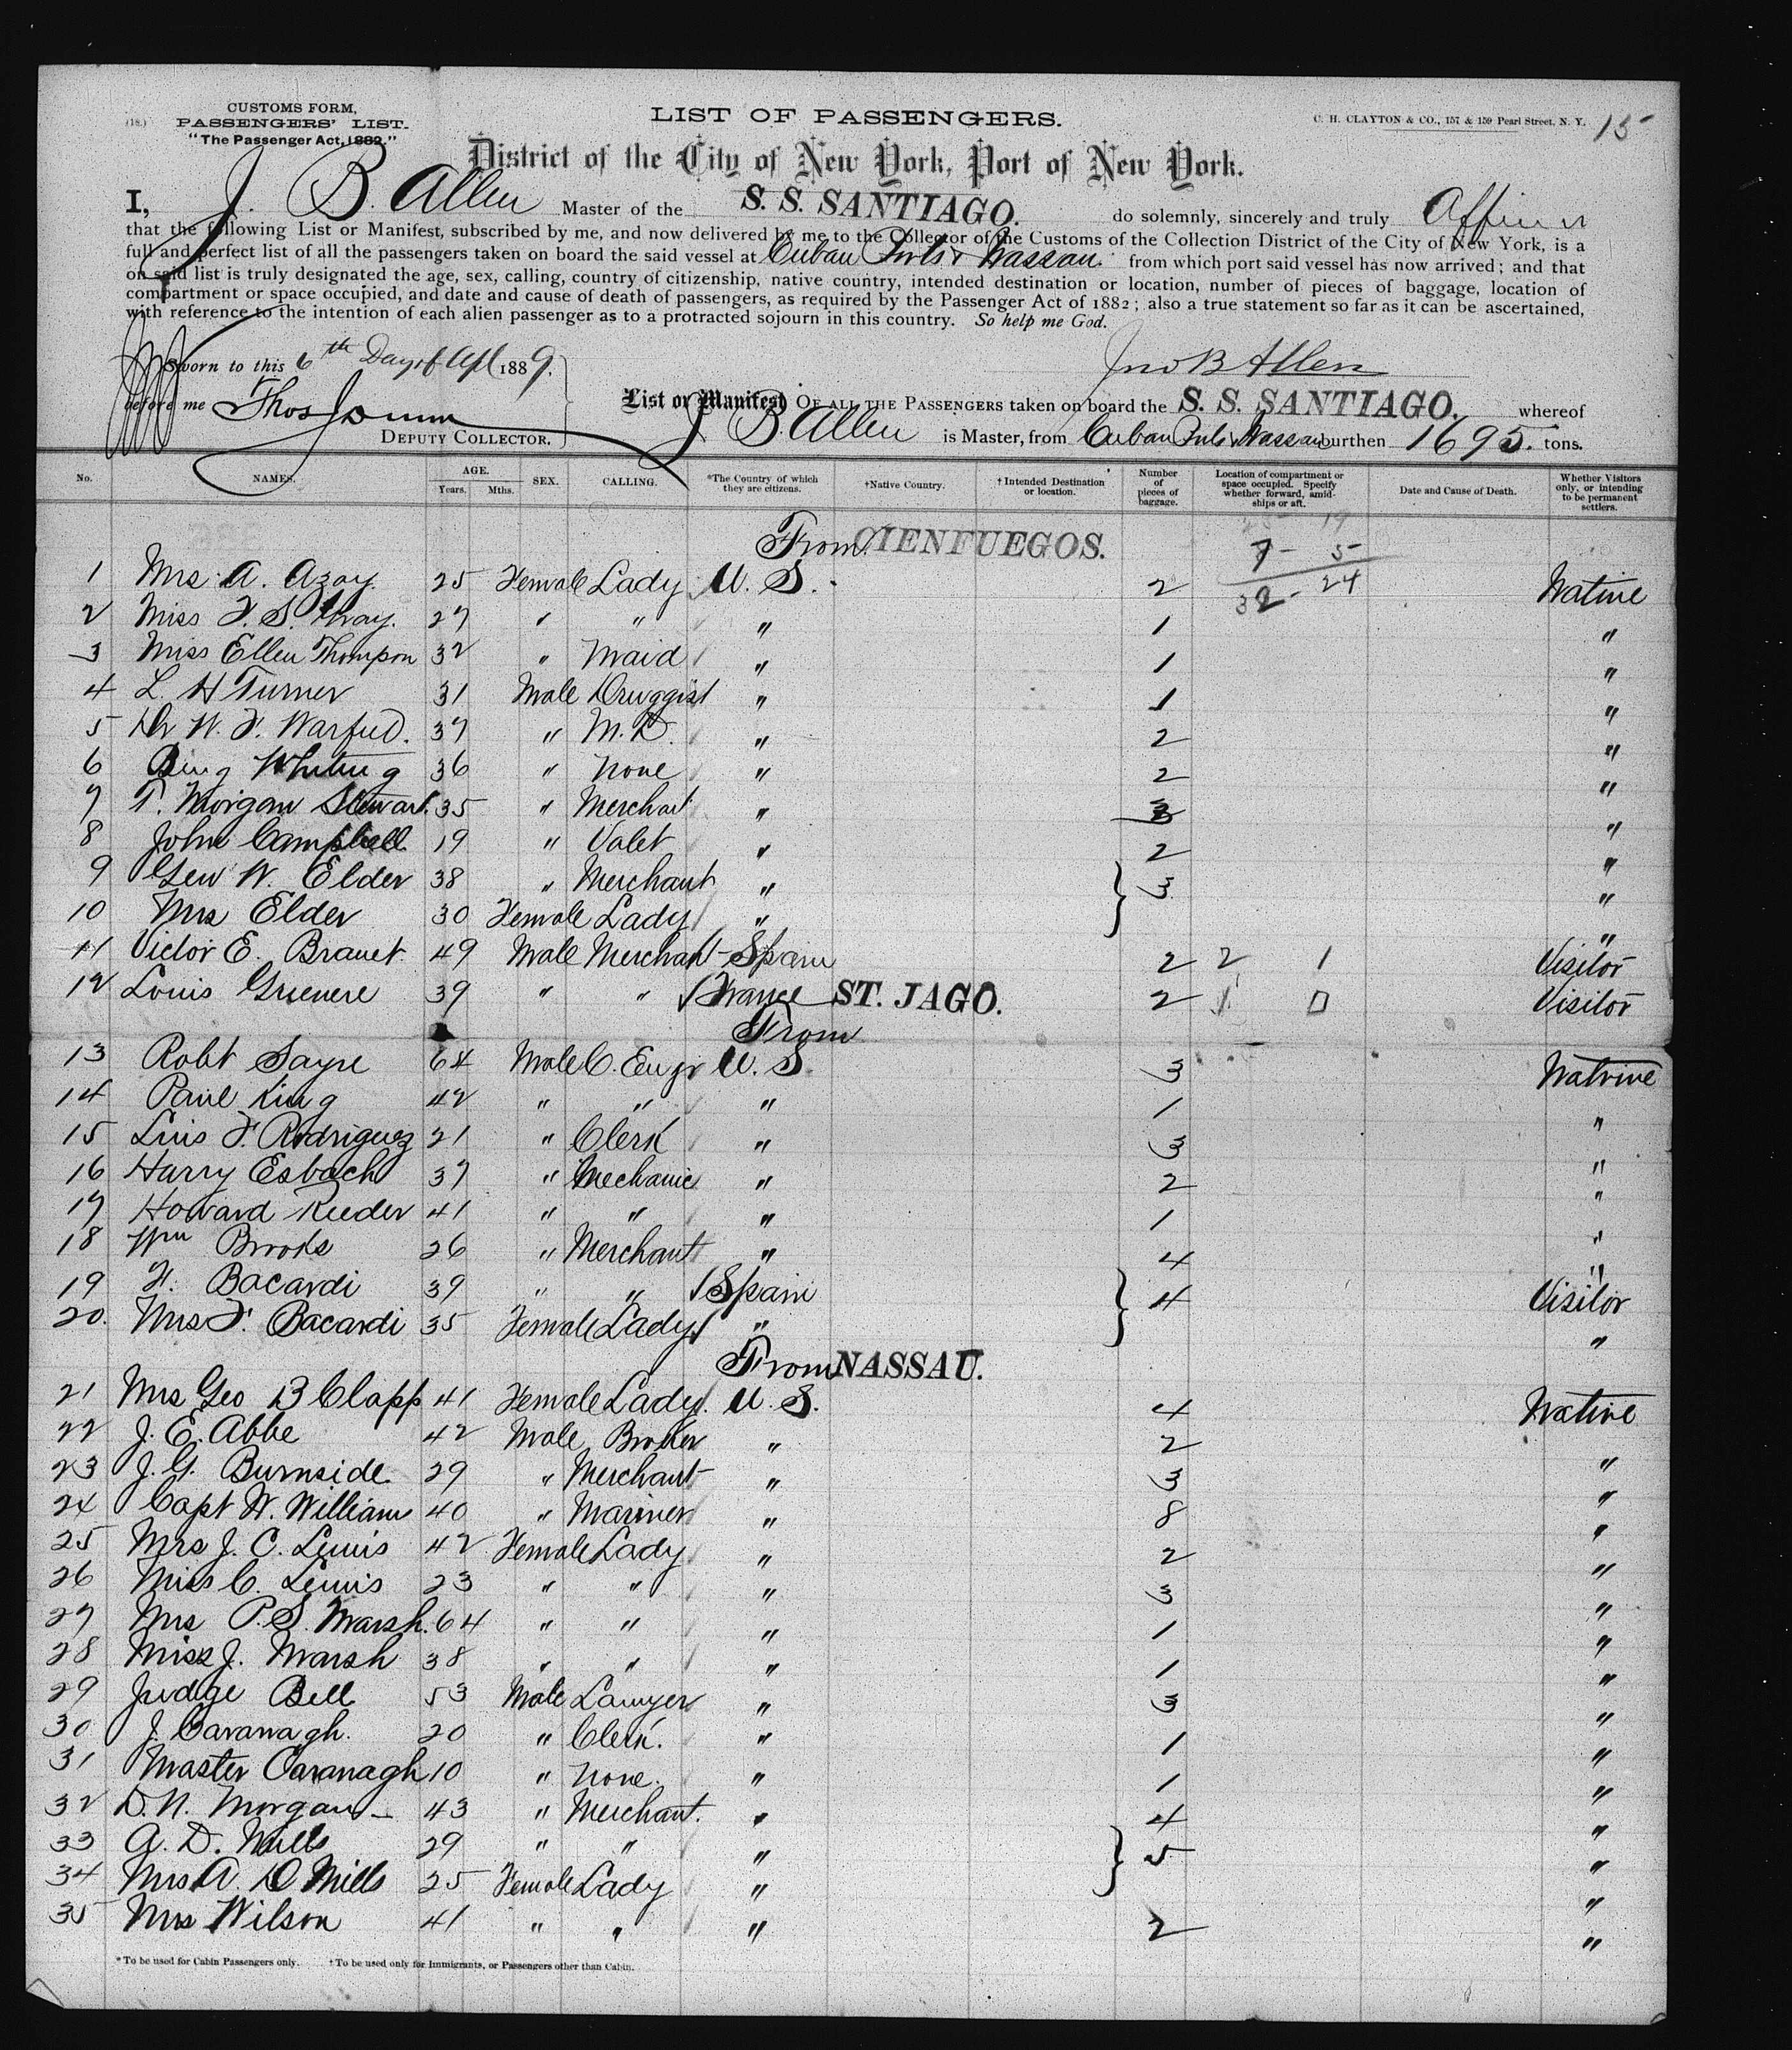 CUSTOMS FORM,
(18.) PASSENGERS' LIST.
"The Passenger Act, 1882."
LIST OF PASSENGERS.
C. H. CLAYTON & CO., 157 & 159 Pearl Street, N. Y. 15
District of the City of New York, Port of New York.
I, J. B. Allen Master of the S. S. SANTIAGO. do solemnly, sincerely and truly Affirm
that the following List or Manifest, subscribed by me, and now delivered by me to the Collector of the Customs of the Collection District of the City of New York, is a
full and perfect list of all the passengers taken on board the said vessel at Cuban Ports & Nassau. from which port said vessel has now arrived; and that
on said list is truly designated the age, sex, calling, country of citizenship, native country, intended destination or location, number of pieces of baggage, location of
compartment or space occupied, and date and cause of death of passengers, as required by the Passenger Act of 1882; also a true statement so far as it can be ascertained,
with reference to the intention of each alien passenger as to a protracted sojourn in this country. So help me God.
Sworn to this 6th Day of Apl 1889.
Jno B Allen
before me Thos
DEPUTY COLLECTOR.
List or Manifest OF ALL THE PASSENGERS taken on board the S. S. SANTIAGO. whereof
J B. Allen is Master, from Cuban Ports & Nassau burthen 1695. tons.
No. NAMES. AGE. Years. Mths. SEX. CALLING. *The Country of which they are citizens. †Native Country. †Intended Destination or location. Number of pieces of baggage. Location of compartment or space occupied. Specify whether forward, amidships or aft. Date and Cause of Death. Whether Visitors only, or intending to be permanent settlers.
25 - 19
From CIENFUEGOS. 7 - 5
1 Mrs A. Azoy. 25 Female Lady U. S. 2 32 - 24 Native
2 Miss F. S. 27 " " " 1 "
3 Miss Ellen Thompson 32 " Maid " 1 "
4 L. H Turner 31 Male Druggist " 1 "
5 Dr W. F. 37 " M. D. " 2 "
6 Whiting 36 " None " 2 "
7 T. Morgan Stewart. 35 " Merchant " 3 "
8 John Campbell 19 " Valet " 2 "
9 Geo W. Elder 38 " Merchant " 3 "
10 Mrs Elder 30 Female Lady " "
11 Victor E. Branet 49 Male Merchant Spain 2 2 1 Visitor
12 Louis 39 " " France 2 1 0 Visitor
ST. JAGO.
From
13 Robt Sayre 64 Male C. Engr U. S. 3 Native
14 Paul King 42 " " " 1 "
15 Luis F. Rodriguez 21 " Clerk " 3 "
16 Harry Esbach 37 " Mechanic " 2 "
17 Howard Reeder 41 " " " 1 "
18 Wm Brooks 26 " Merchant " 4 "
19 F. Bacardi 39 " " Spain 4 Visitor
20. Mrs F. Bacardi 35 Female Lady " "
From NASSAU.
21 Mrs Geo B Clapp 41 Female Lady. U. S. 4 Native
22 J. E. Abbe 42 Male Broker " 2 "
23 J. G. Burnside 29 " Merchant " 3 "
24 Capt W. Williams 40 " Mariner " 8 "
25 Mrs J. C. Lewis 42 Female Lady " 2 "
26 Miss C. Lewis 23 " " " 3 "
27 Mrs P. S. Marsh. 64 " " " 1 "
28 Miss J. Marsh 38 " " " 1 "
29 Judge Bell 53 Male Lawyer " 3 "
30 J. Cavanagh. 20 " Clerk. " 1 "
31 Master Cavanagh 10 " None. " 1 "
32 D. N. Morgan - 43 " Merchant. " 4 "
33 A. D. Mills 29 " " " 5 "
34 Mrs A. D Mills 25 Female Lady " "
35 Mrs Wilson 41 " " " 2 "
*To be used for Cabin Passengers only. †To be used only for Immigrants, or Passengers other than Cabin.